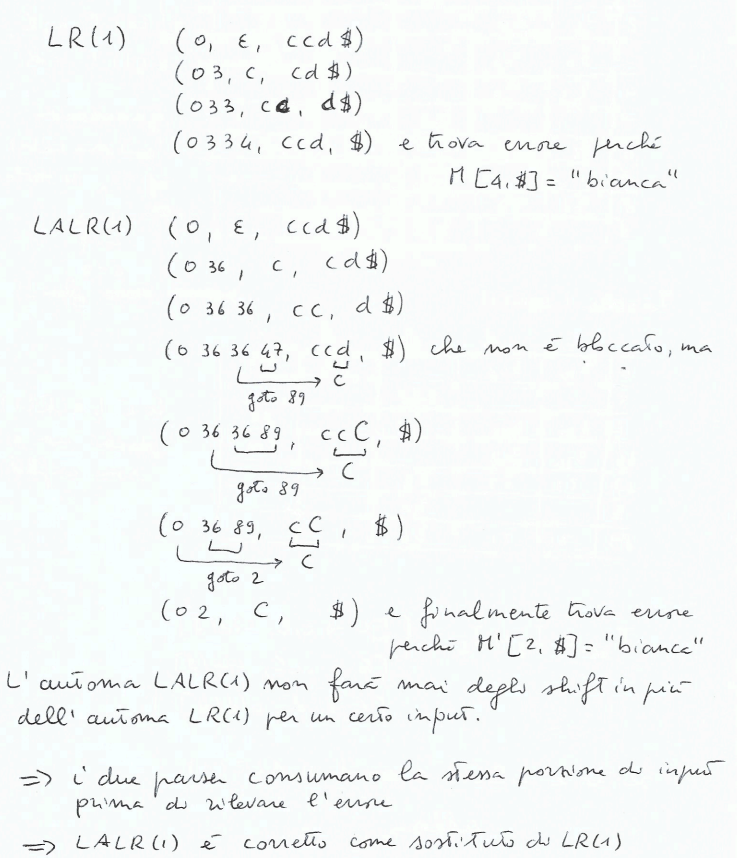 LR(1) (0, ε, ccd$)
(03, c, cd$)
(033, cc, d$)
(0334, ccd, $) e trova errore perché
M[4,$] = "bianca"
LALR(1) (0, ε, ccd$)
(0 36, c, cd$)
(0 36 36, cc, d$)
(0 36 36 47, ccd, $) che non è bloccato, ma
C
goto 89
(0 36 36 89, ccC, $)
C
goto 89
(0 36 89, cC, $)
C
goto 2
(02, C, $) e finalmente trova errore
perché M'[2,$] = "bianca"
L'automa LALR(1) non farà mai degli shift in più
dell'automa LR(1) per un certo input.
=> i due parser consumano la stessa porzione di input
prima di rilevare l'errore
=> LALR(1) è corretto come sostituto di LR(1)